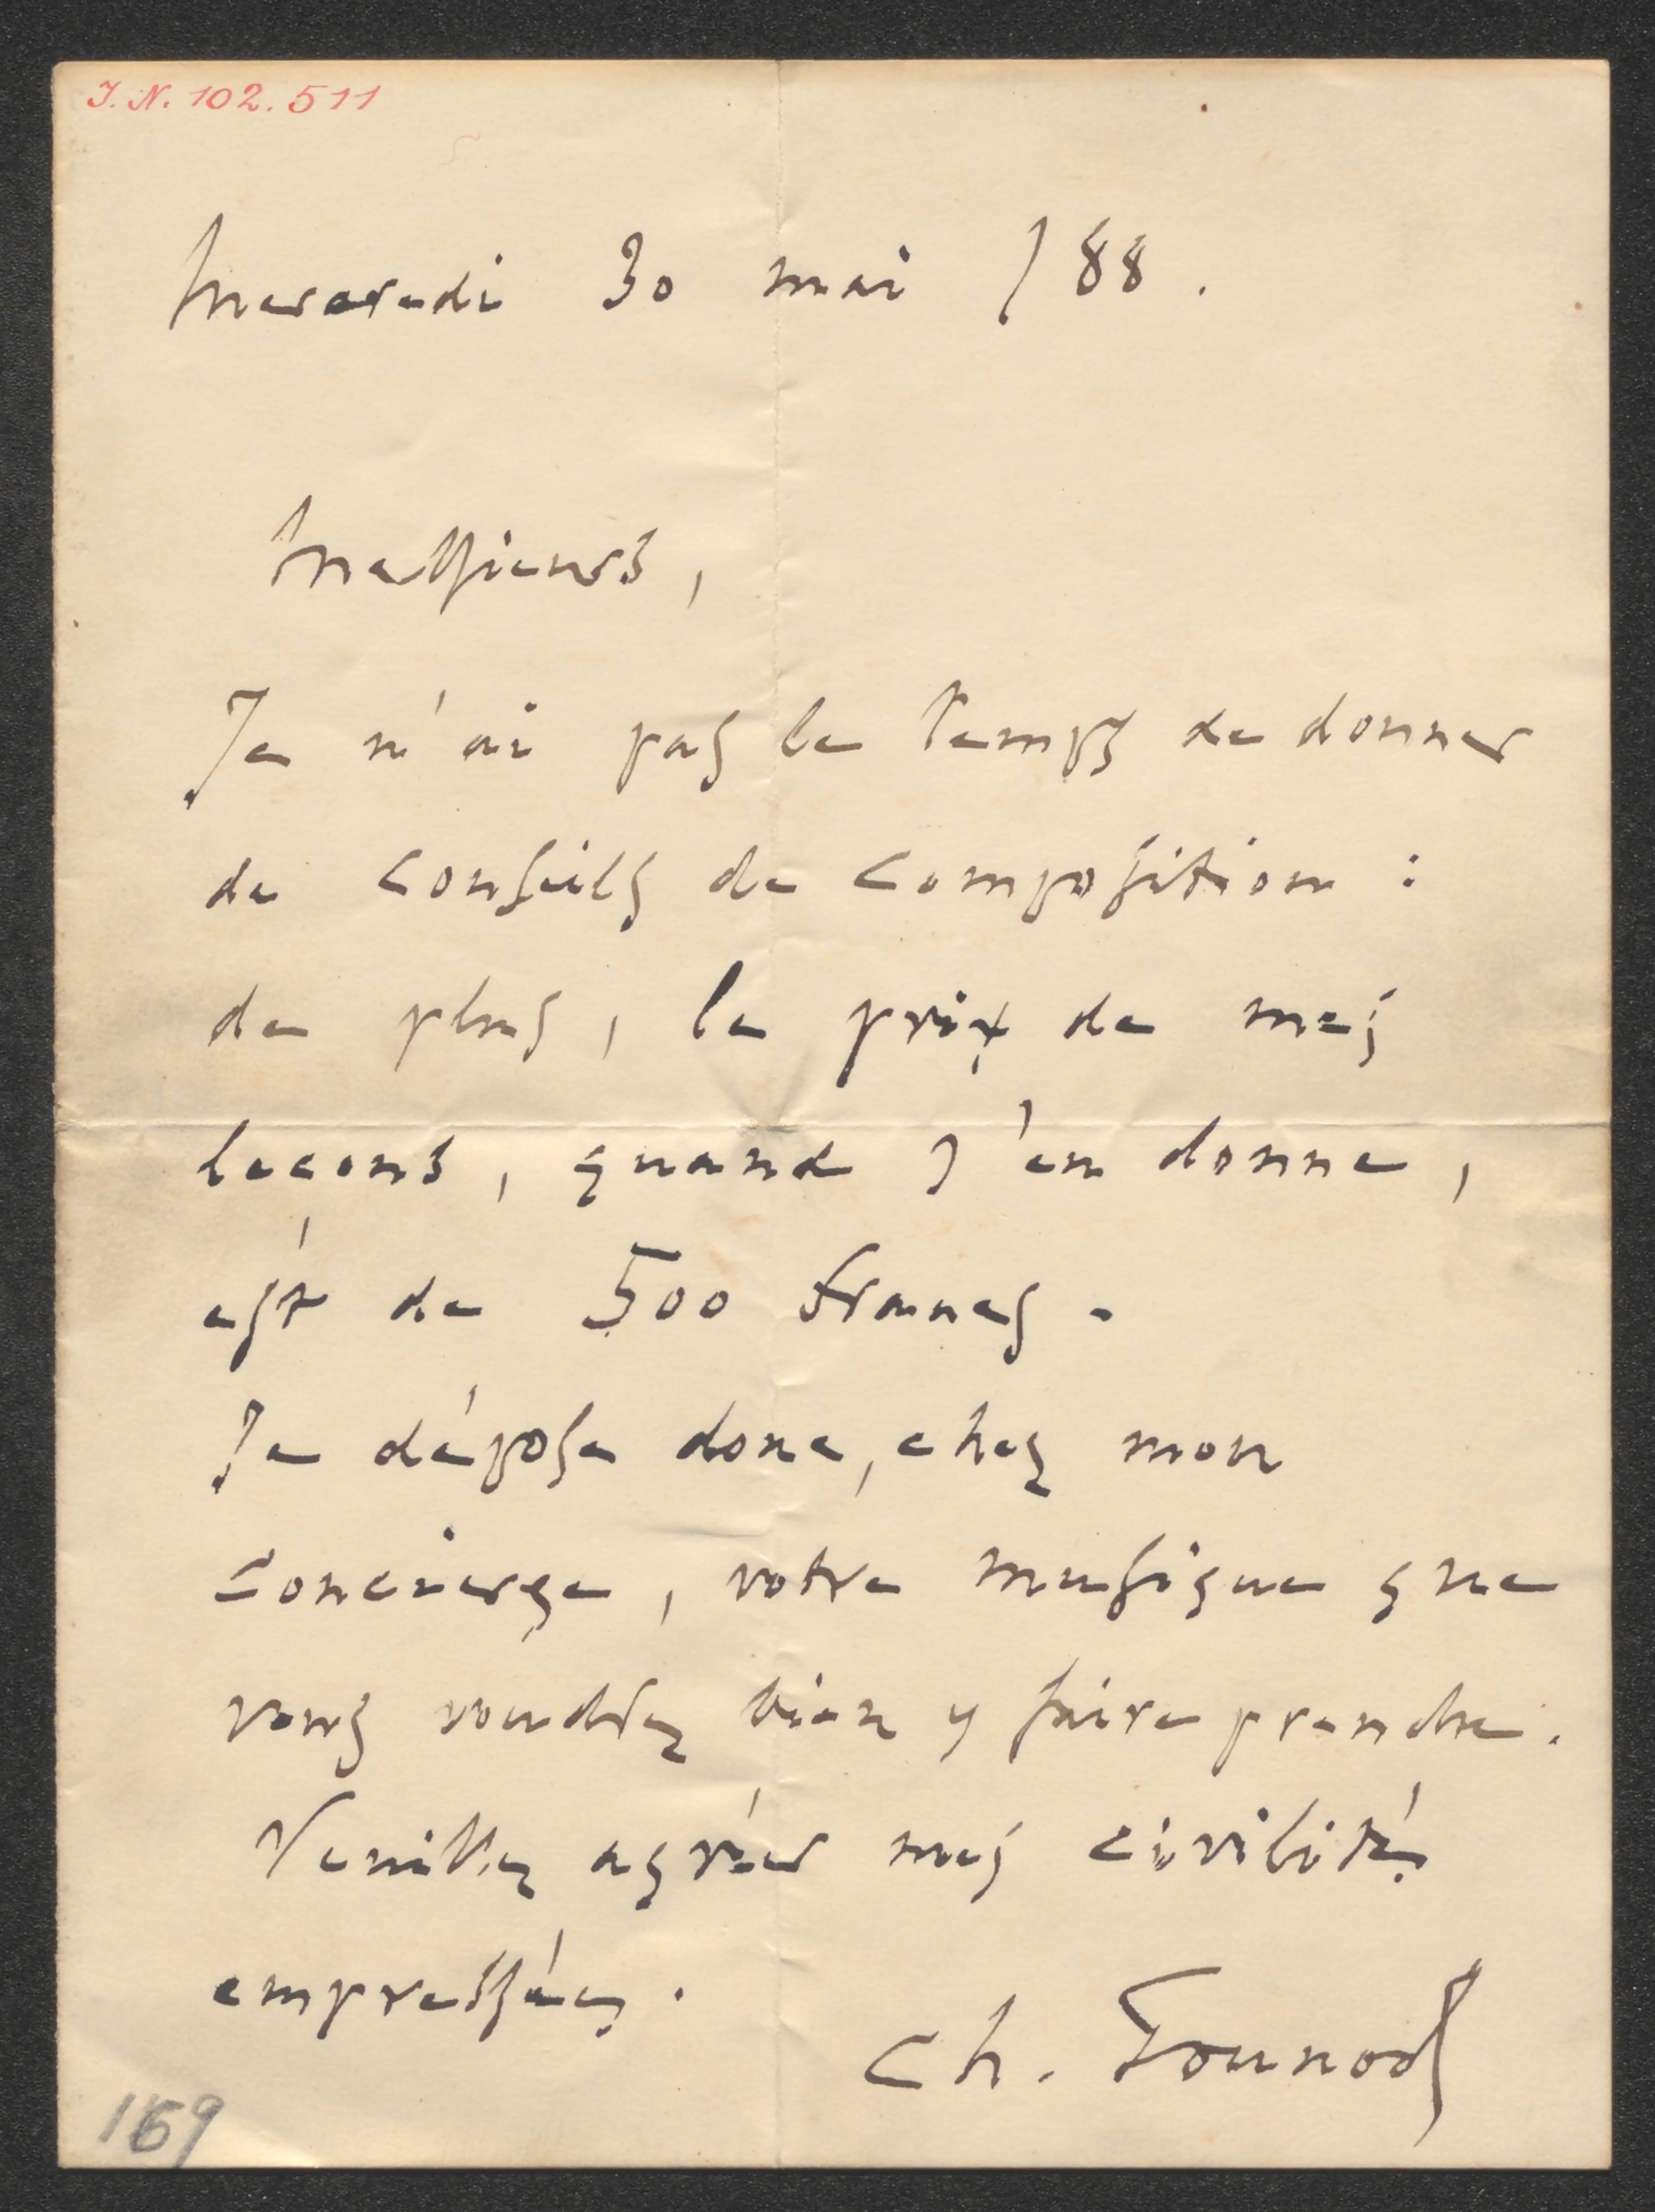 I. N. 102.511
Mercredi 30 mai /88.
Messieurs,
Je n'ai pas le temps de donner
de conseils de composition :
de plus, le prix de mes
leçons, quand j'en donne,
est de 500 francs.
Je dépose donc, chez mon
concierge, votre musique que
vous voudrez bien y faire prendre.
Veuillez agréer mes civilités
empressées.
Ch. Gounod
169